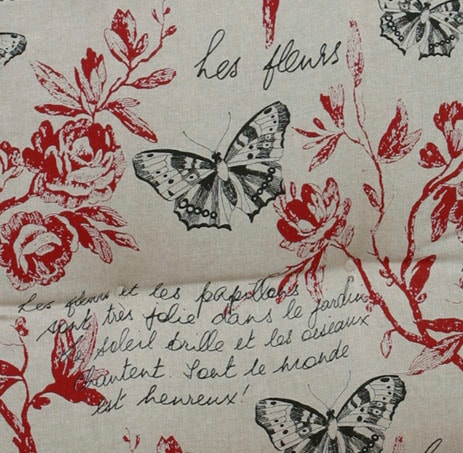 Les fleurs
Les fleurs et les papillons
sont très jolie dans le jardin
Le soleil brille et les oiseaux
chantent. Tout le monde
est heureux!